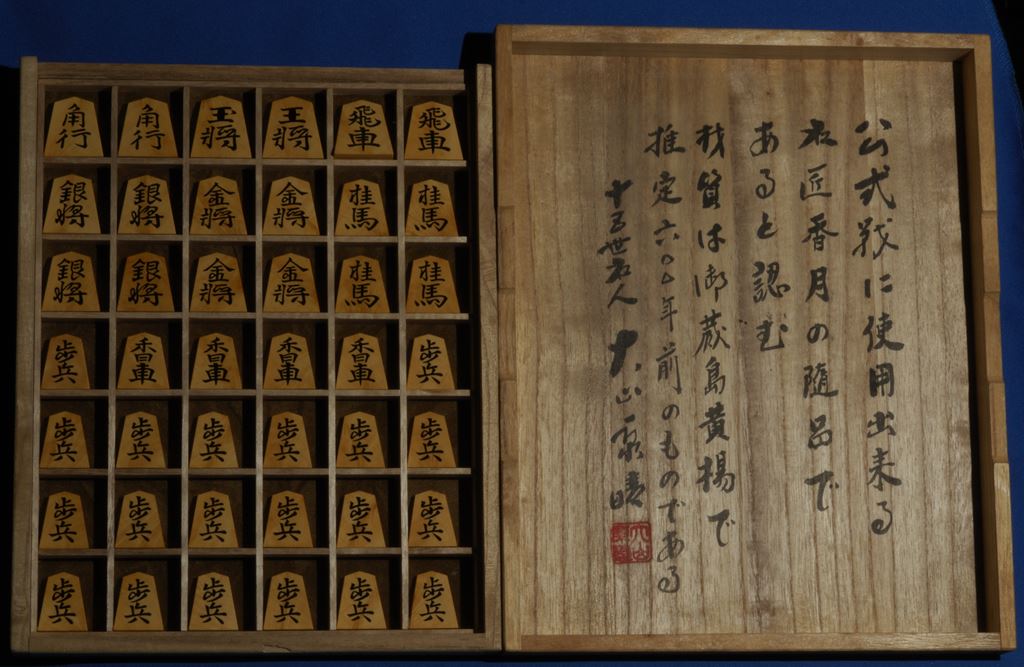 角行 角行 玉將 王將 飛車 飛車
銀将 銀将 金將 金將 桂馬 桂馬
銀将 銀将 金將 金將 桂馬 桂馬
歩兵 香車 香車 香車 香車 歩兵
歩兵 歩兵 歩兵 歩兵 歩兵 歩兵
歩兵 歩兵 歩兵 歩兵 歩兵 歩兵
歩兵 歩兵 歩兵 歩兵 歩兵 歩兵
公式戦に使用出来る
名匠香月の隨品で
あると認む
材質は御蔵島黄楊で
推定六〇〇年前のものである
十五世名人 大山康晴